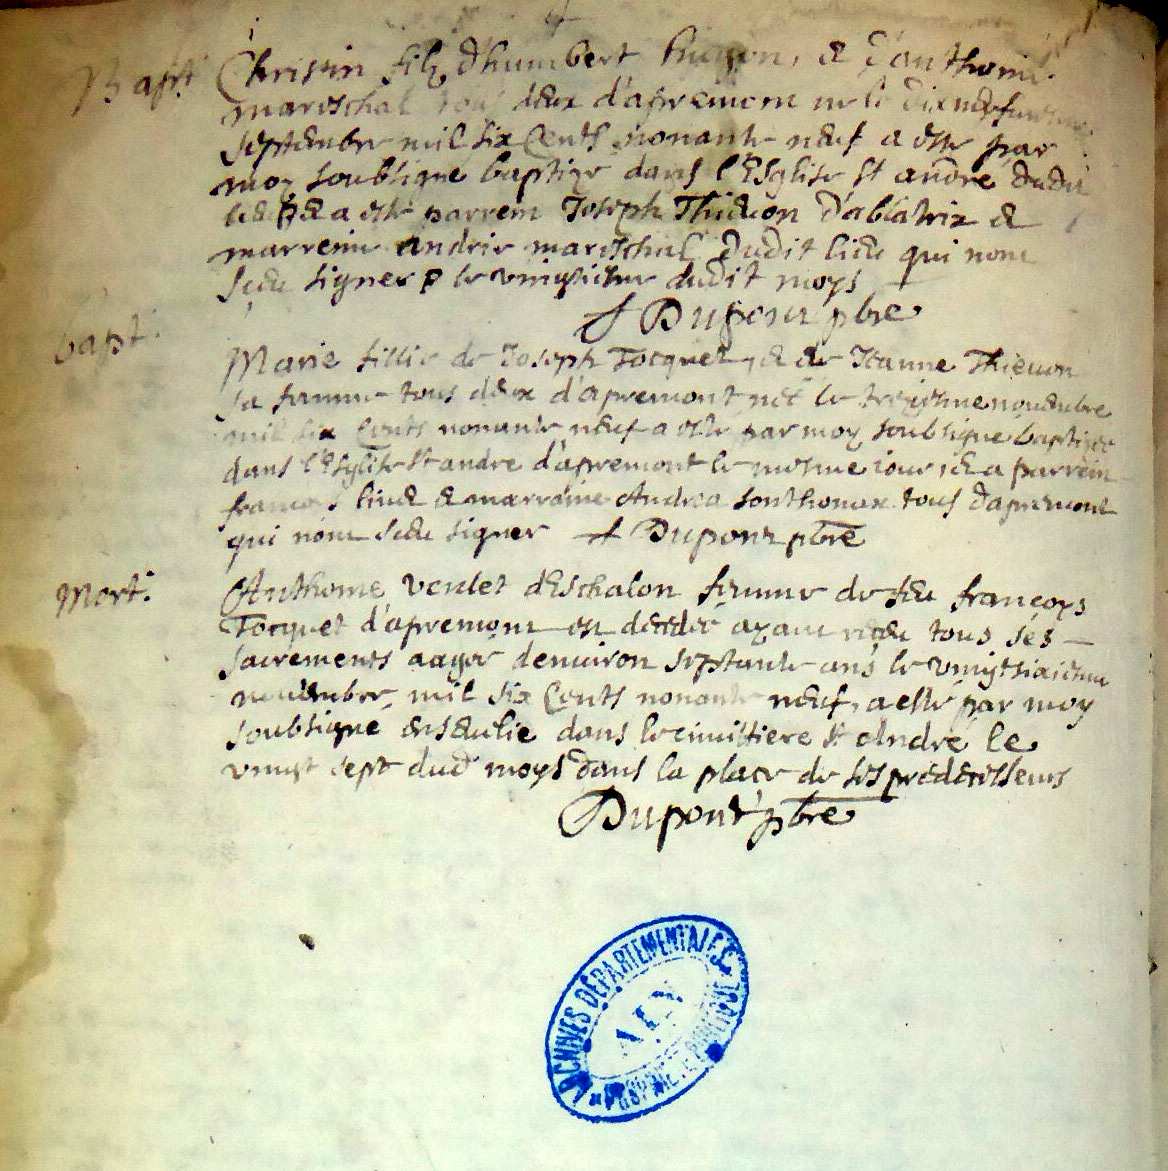 Bapt. Christin filz d'humbert & d'anthomie
mareschal tous deux d'apremont
septembre mil six Cents nonante neuf a este par
moy soubsigne baptize dans l'Esglise St andre dudit
lieu & a este parrein Joseph Thieuon d'ablatrix &
marreine andrie mareschal dudit lieu qui nont
sceu signer le dudit moys
Dupont pbre
bapt. Marie fillie de Joseph Tocquet, & de Jeanne Thieuon
sa femme tous deux d'apremont née le treziesme nouembre
mil six Cents nonante neuf a este par moy soubsigne baptizee
dans l'Esglise St andre d'apremont le mesme iour, & a parrein
francoys & marraine Andrea Sonthonax tous d'apremont
qui nont sceu signer Dupont pbre
Mort. Anthome d'Eschalon femme de feu françoys
Tocquet d'apremont est décédée ayant reçeu tous ses
sacrements aagée denuiron septante ans le vingtsixiesme
nouembre mil six Cents nonante neuf, a esté par moy
soubsigné enseuelie dans le cimittiere St Andre le
vingt sept dud moys dans la place de ses predecesseurs
Dupont pbre
ARCHIVES DÉPARTEMENTALES
AIN
PROPRIÉTÉ PUBLIQUE